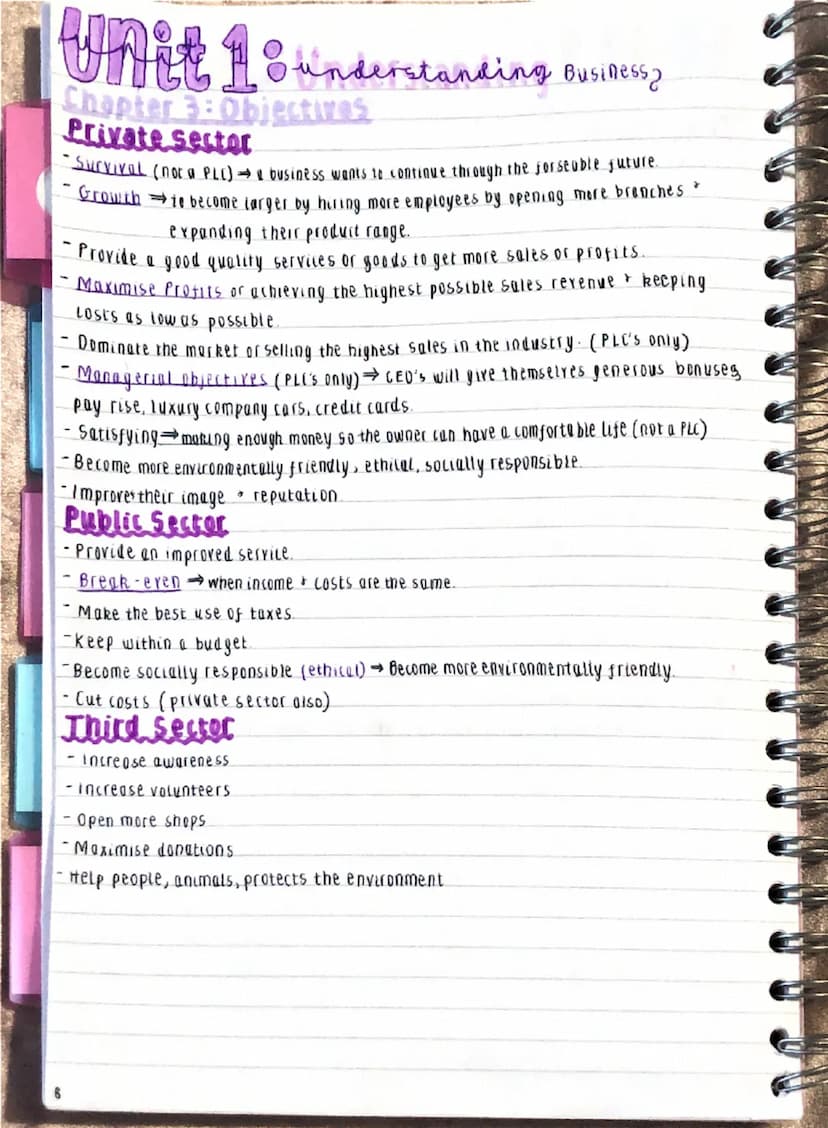 Unit 1: Understanding Business
Chapter 3: Objectives
Private Sector
- Survival (not a PLC) → a business wants to continue through the forseuble future.
- Growth → to become larger by hiring more employees by opening more branches +
expanding their product range.
- Provide a good quality services or goods to get more sales or profits.
- Maximise Profits or achieving the highest possible sales revenue + keeping
costs as low as possible.
- Dominate the market or selling the highest sales in the industry. (PLC's only)
- Managerial objectives (PLC's only) → CEO's will give themselves generous bonuses,
pay rise, luxury company cars, credit cards.
- Satisfying → making enough money so the owner can have a comfortable life (not a PLC)
- Become more environmentally friendly, ethical, socially responsible.
- Improve their image + reputation
Public Sector
- Provide an improved service.
- Break-even → when income + costs are the same.
- Make the best use of taxes.
- Keep within a budget
- Become socially responsible (ethical) → Become more environmentally friendly.
- Cut costs (private sector also)
Third Sector
- Increase awareness
- Increase volunteers
- Open more shops
- Maximise donations
- Help people, animals, protects the environment
6